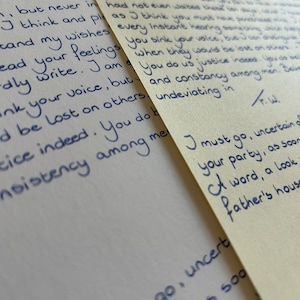 , but never in
I think and pl
tand my wishes
ead your feelings
rdly write. I am
nk your voice, but
d be lost on others
tice indeed. You do b
nsistency among me
go, uncert
s soo
had not even
as I think you must have
every instant hearing
you sink your voice, but
when they would be lost on others.
You do us justice indeed. You do
and constancy among men.
undeviating in
F. W.
I must go, uncertain of
your party, as soon
A word, a look
father's house